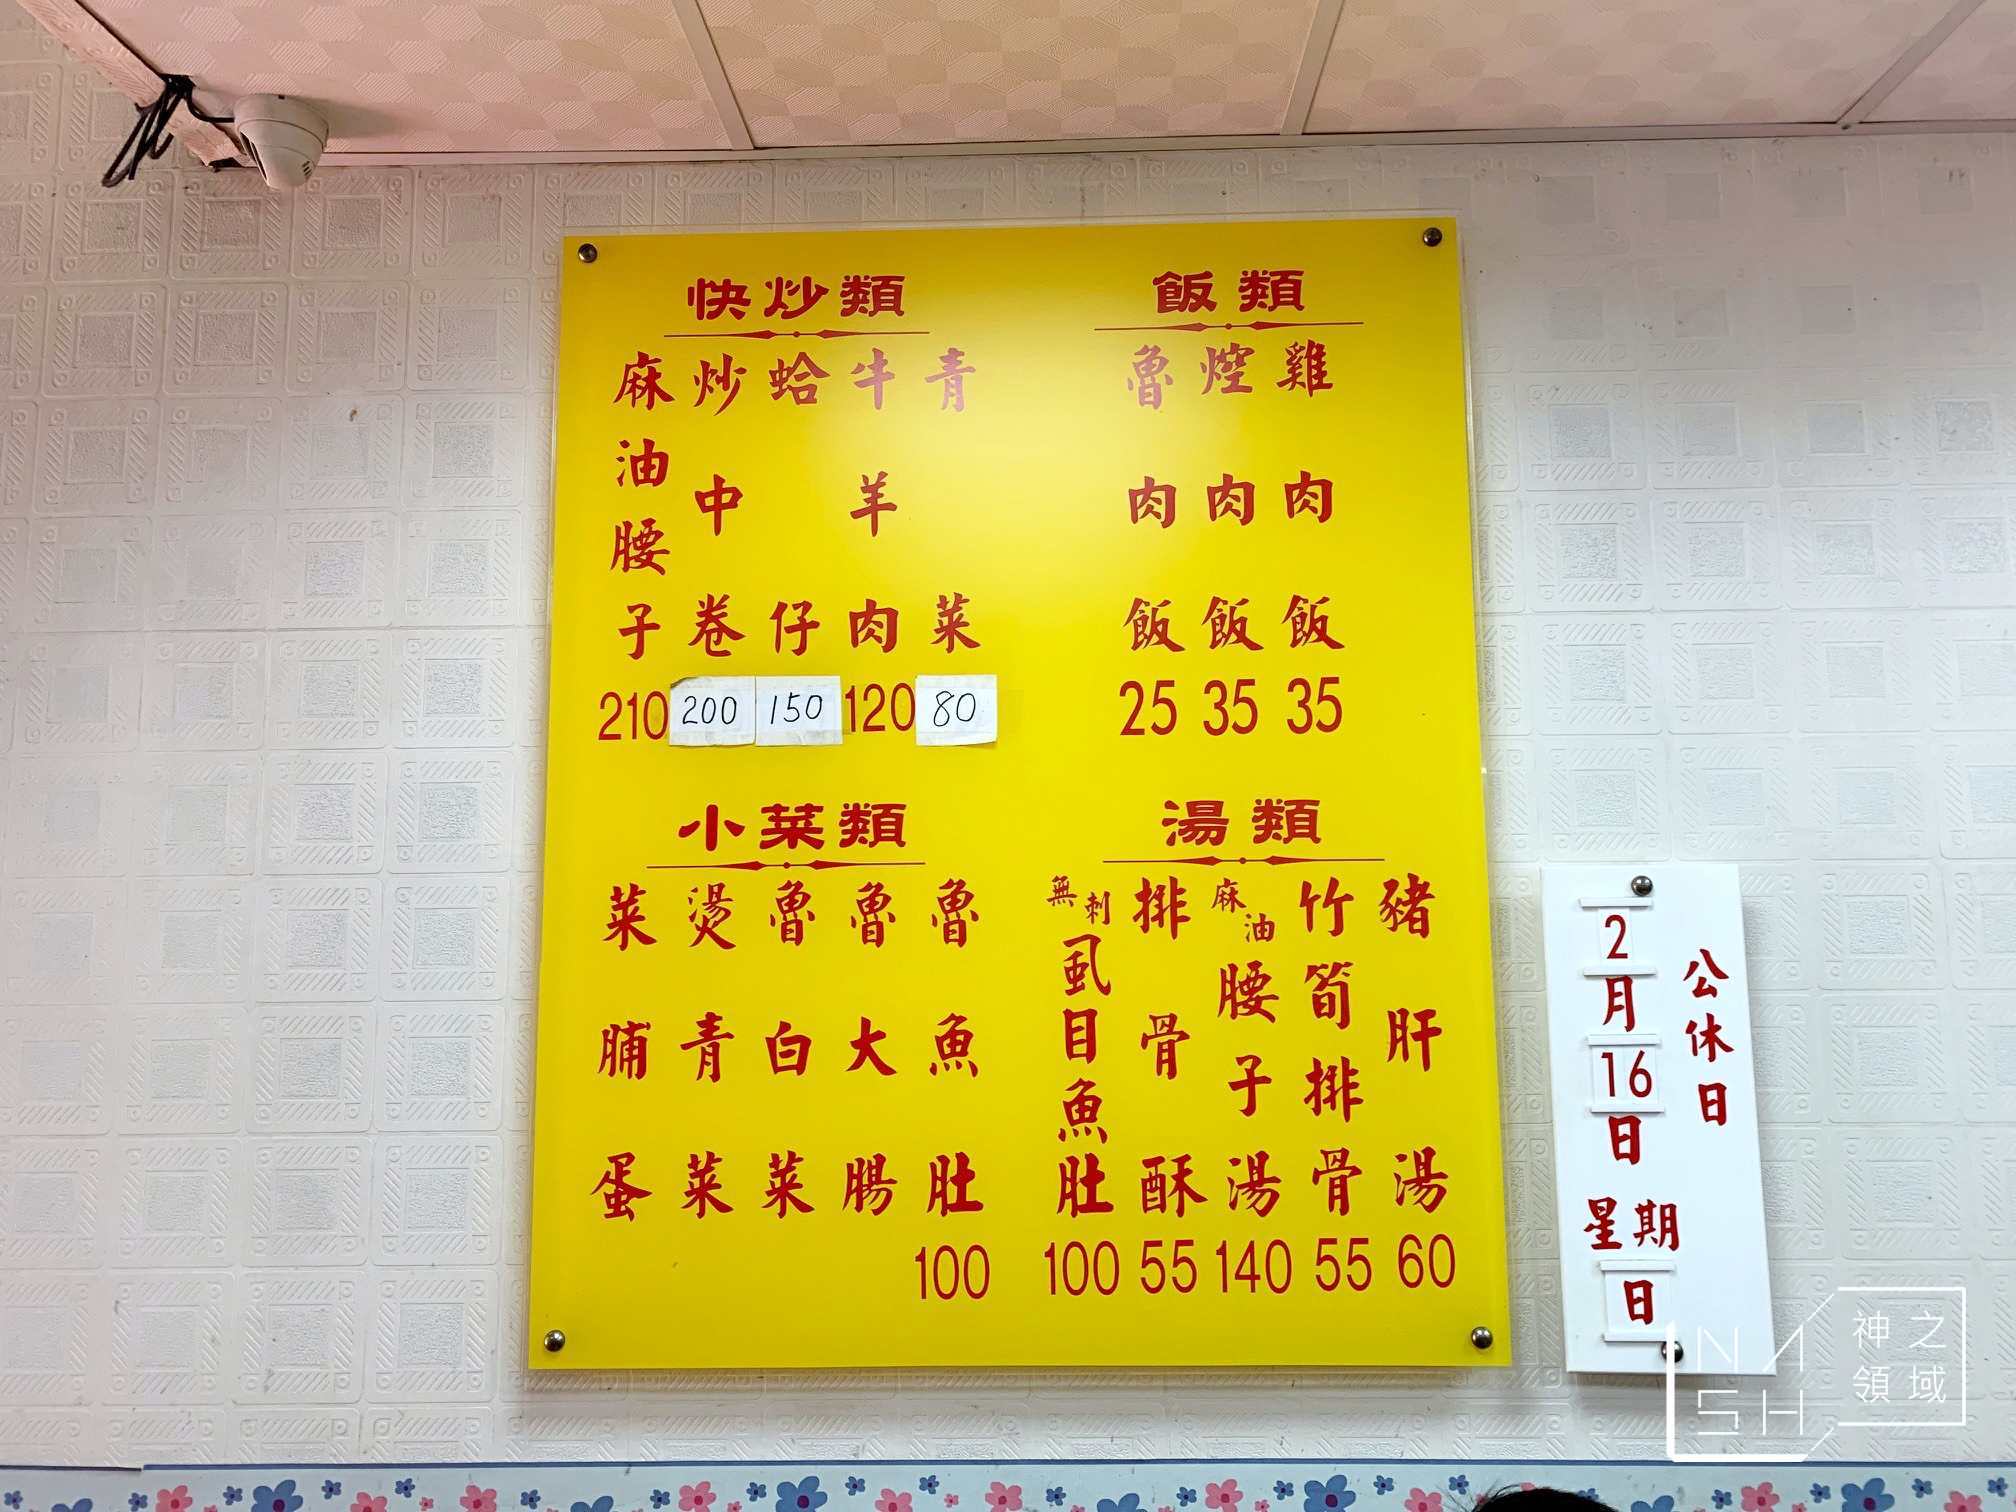 飯類
雞肉飯 35
焢肉飯 35
魯肉飯 25
快炒類
青菜 80
牛羊肉 120
蛤仔 150
炒中卷 200
麻油腰子 210
湯類
豬肝湯 60
竹筍排骨 55
麻油腰子湯 140
排骨酥 55
無刺虱目魚肚 100
小菜類
魯魚肚 100
魯大腸
魯白菜
燙青菜
菜脯蛋
公休日
2月16日
星期日
NASH
神之領域